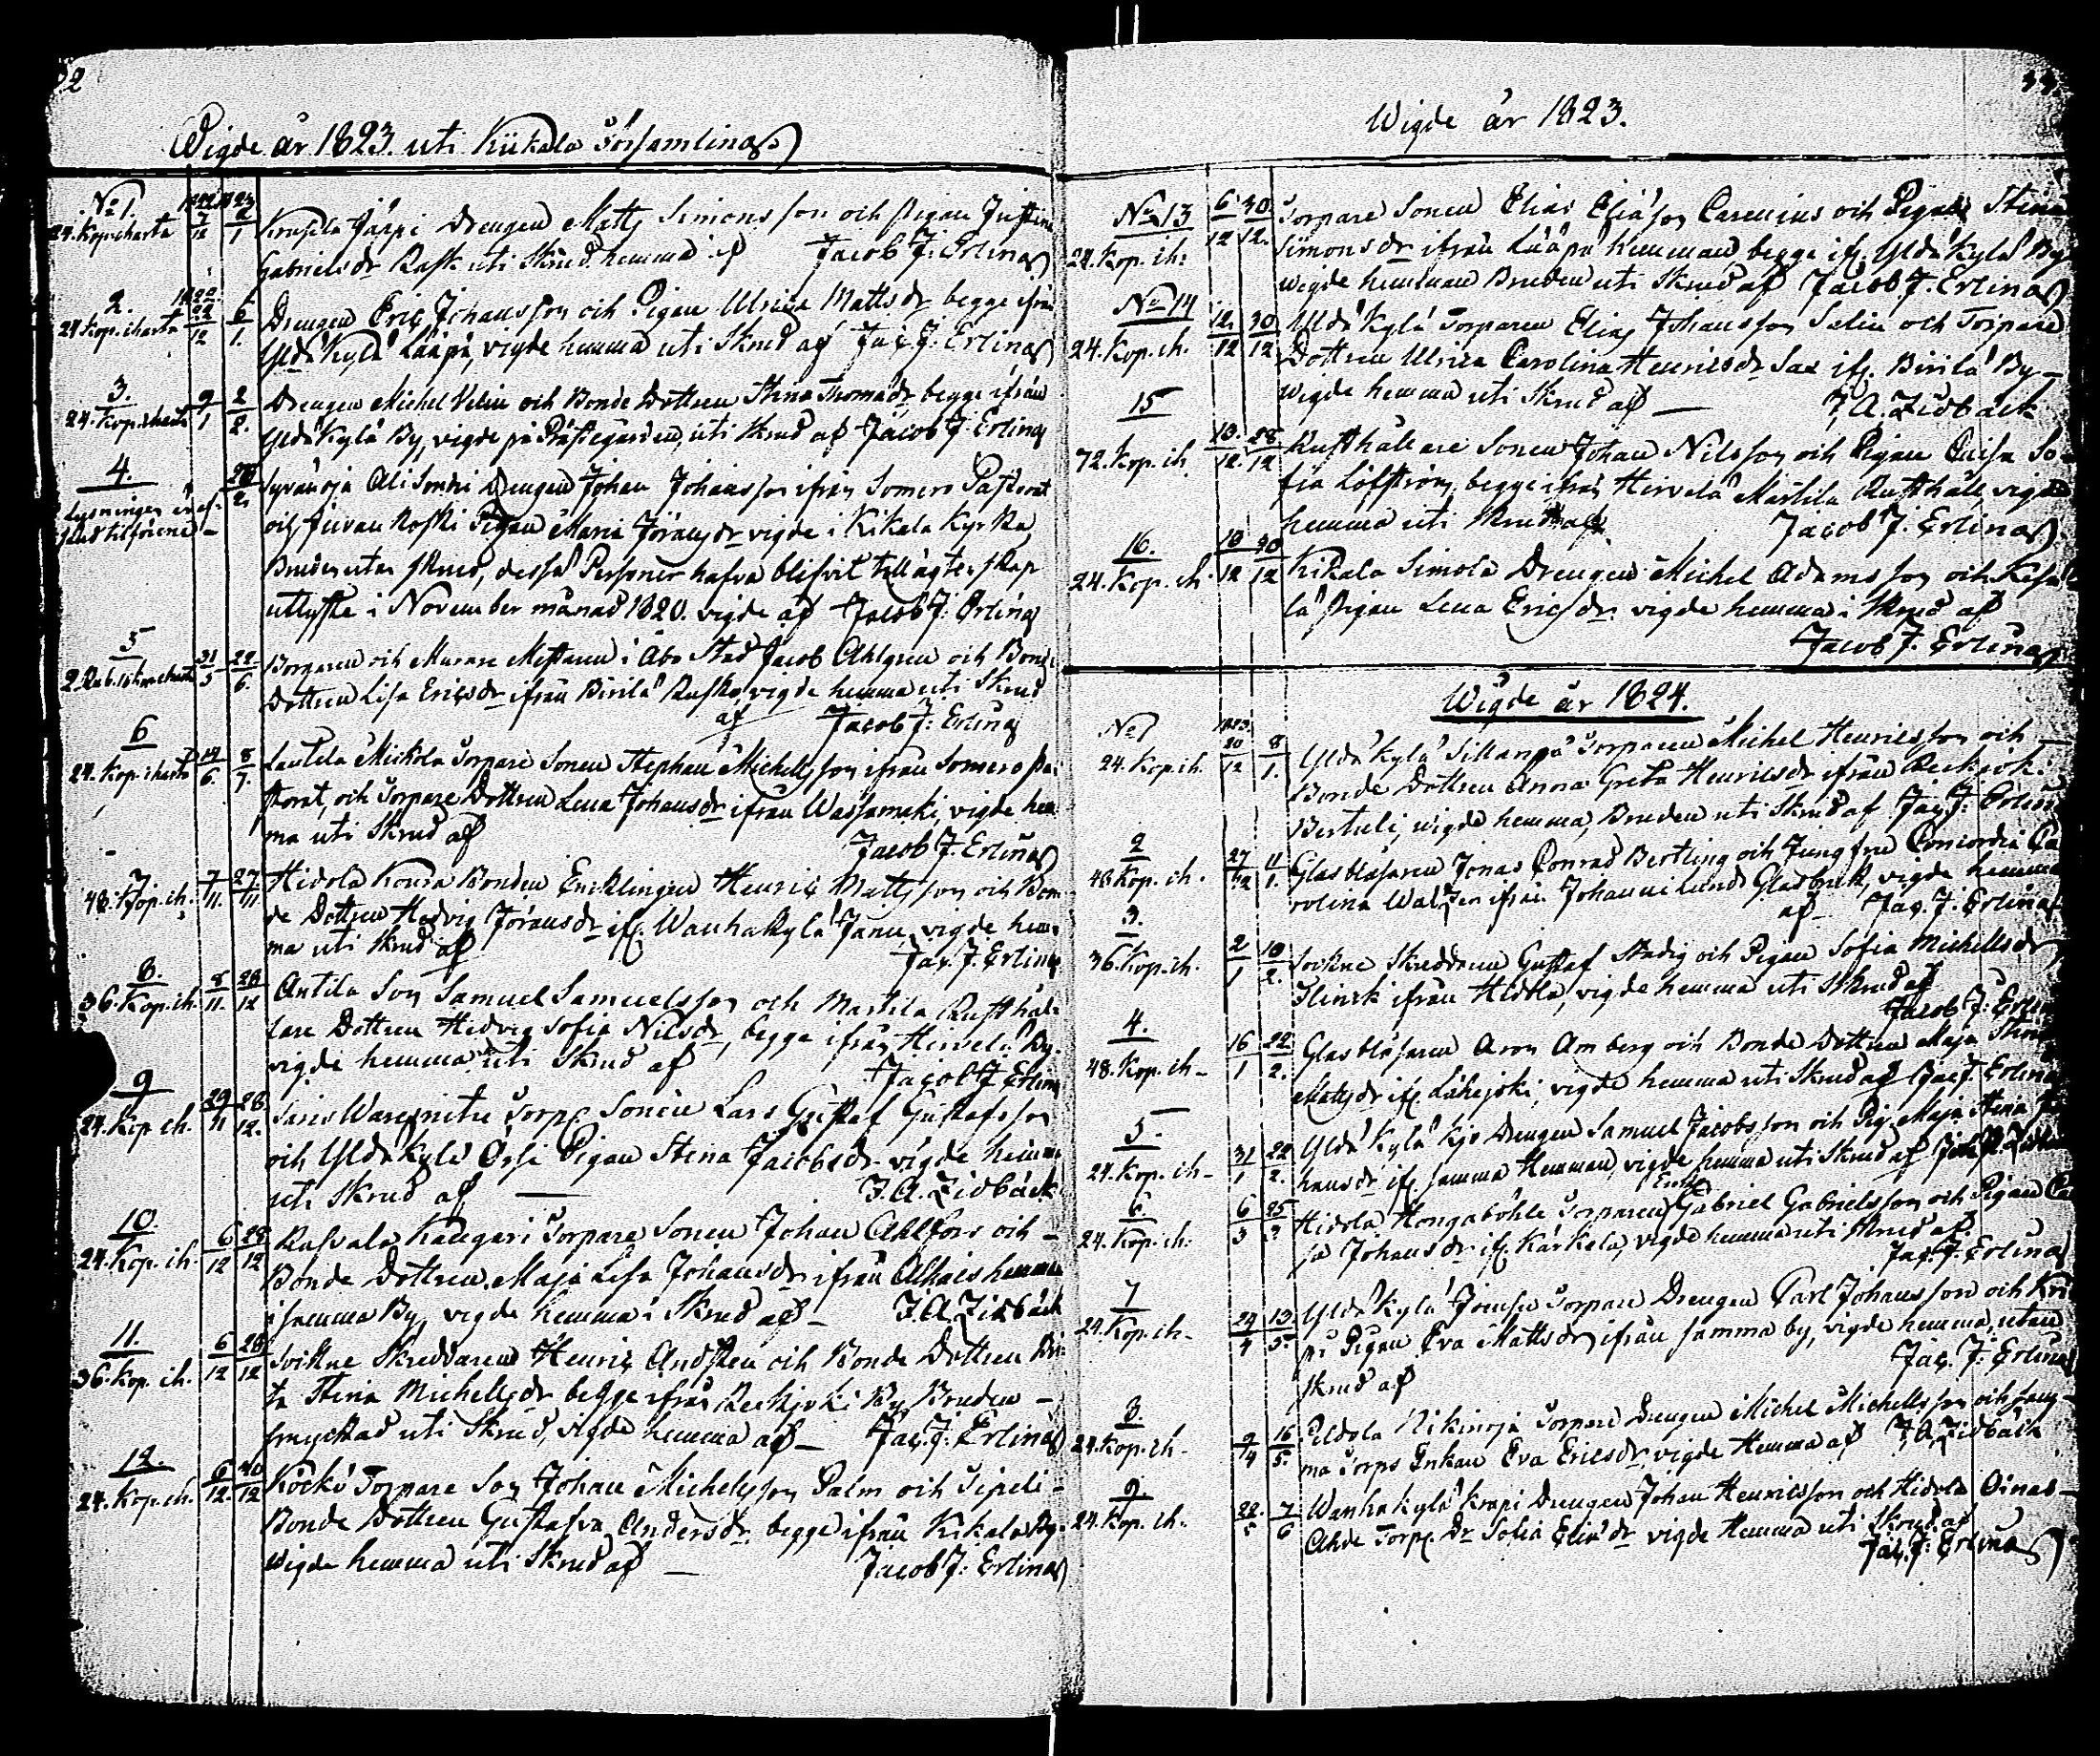 Wigde år 1823. uti Kiikala Församling
No 1. 1822 1823
24. Kop. charta 7/12 2/1 Järpi Drengen Matts Simonsson och Pigan Justina
Gabrielsdr Rask uti Skrud hemma af Jacob J. Erling
2. 24 Kop. charta 22/12 6/1 Drengen Eric Johansson och Pigan Ulrica Mattsdr begge ifrån
Yldäkylä Lääpä, vigde hemma uti Skrud af Jac J. Erling
3. 24. Kop. charta 9/1 2/2. Drengen Michel Velin och Bonde Dottren Stina Thomadr begge ifrån
Yldäkylä By, vigde på Prästegården, uti Skrud af Jacob J. Erling
4. Syvänoja Ali Drengen Johan Johansson ifrån Somero Pastorat
Lysningen
och Juvan Koski Pigan Maria Göransdr vigde i Kikala Kyrka
Bruden utan skrud, dessa Personer hafva blifvit till ägtenskap
utlyste i November månad 1820. vigde af Jacob J. Erling
5 31/5 22/6. Borgaren och Murare Mestaren i Åbo Stad Jacob Ahlgren och Bonde
Dottren Lisa Ericsdr ifrån Pirilä Rusko, vigde hemma uti Skrud
af Jacob J. Erling
6
24. Kop. charta 14/6. 8/7. Mickola Torpare Sonen Stephan Michelsson ifrån Somero Pa-
storat, och Torpare Dottren Lena Johansdr ifrån Wassamäki, vigde hem
ma uti Skrud af Jacob J. Erling
7
48. Kop. ch. 7/11. 27/11 Hidola Bonden Enklingen Henric Mattsson och Bon
de Dottren Hedvig Göransdr if. Wanhakylä Janu, vigde hem
ma uti skrud af Jac. J. Erling
8. 36. Kop. ch. 8/11. 28/12 Antila Son Samuel Samuelsson och Martila Rusthål-
lare Dottren Hedvig Sofia Nilsdr, begge ifrån Hirvelä By.
vigde hemma uti Skrud af Jacob J Erling
9
24. Kop. ch. 29/11 28/12. Torp. Sonen Lars Gustaf Gustafsson
och Yldäkylä Pigan Stina Jacobsdr vigde hemma
uti Skrud af — J. A. Zidbäck
10.
24. Kop. ch. 6/12 28/12 Rasvala Kangari Torpare Sonen Johan Ahlfors och –
Bonde Dottren Maja Lisa Johansdr ifrån hemman
i samma By, vigde hemma i Skrud af – J. A. Zidbäck
11.
36. Kop. ch. 6/12 28/12 Sockne Skreddaren Henric Andsten och Bonde Dottren Bri-
ta Stina Michelsdr begge ifrån Reckjoki By, Bruden –
smyckad uti Skrud, vigde hemma af – Jac. J. Erling
12.
24. Kop. ch. 6/12. 30/12 Köckö Torpare Son Johan Michelsson Palm och Sipeli –
Bonde Dottren Gustafva Andersdr begge ifrån Kikala By.
Wigde hemma uti Skrud af — Jacob J: Erling
Wigde år 1823.
No 13
24. Kop. ch. 6/12 30/12. Torpare Sonen Elias Eliasson Carenius och Pigan Stina
Simonsdr ifrån Lääpä Hemman, begge if. Yldäkylä By
wigde hemma Bruden uti Skrud af Jacob J. Erling
No 14
24. Kop. ch. 12/12 30/12 Yldäkylä Torparen Elias Johansson Salin och Torpare
Dottren Ulrica Carolina Henricsdr Sax if. Pirilä By –
wigde hemma uti Skrud af — J. A. Zidbäck
15
72. Kop. ch 10./12. 28/12 Rusthållare Sonen Johan Nilsson och Pigan Lovisa So-
fia Löfström, begge ifrån Hirvelä Martila Rusthåll vigde
hemma uti skrud af Jacob J. Erling
16.
24. Kop. ch. 10/12 30/12 Kikala Simola Drengen Michel Adamsson och
lä Pigan Lena Ericsdr vigde hemma i Skrud af
Jacob J. Erling
Wigde år 1824.
No 1 1823.
24. Kop. ch. 20/12 8/1. Yldäkylä Sillanpä Torparen Michel Henricsson och —
Bonde Dottren Anna Greta Henricsdr ifrån Reckjoki
Bertuli, wigde hemma, Bruden uti Skrud af Jac J. Erling
2
48 Kop. ch. 27/12 11/1. Glasblåsaren Jonas Conrad Bertling och Jungfru Concordia Ca
rolina Walzer ifrån Johannislund Glasbruk, vigde hemma
af – Jac. J. Erling
3.
36. Kop. ch. 2/1 10/2. Sockne Skreddaren Gustaf Stadig och Pigan Sofia Michelsdr
Flinck ifrån Hidola, vigde hemma uti Skrud af
Jacob J: Erling
4.
48. Kop. ch – 16/1 22/2. Glasblåsaren Aron Amberg och Bonde Dottren Maja Stina
Mattsdr if. Lähejoki, vigde hemma uti Skrud af Jac J. Erling
5.
24. Kop. ch – 31/1 22/2. Yldäkylä Drengen Samuel Jacobsson och Pig. Maja Stina Jo
hansdr if. samma Hemman, vigde hemma uti Skrud af
6.
24. Kop. ch. 6/3 25/3 Hidola Hongaböhle Torparen Enkl. Gabriel Gabrielsson och Pigan
sa Johansdr if. Kärkelä, vigde hemma uti skrud af.
Jac. J. Erling
7
24. Kop. ch – 24/4 13./5. Yldäkylä Torpare Drengen Carl Johansson och
Pigan Eva Mattsdr ifrån samma by, vigde hemma, utan
skrud af Jac. J: Erling
8.
24. Kop. ch – 9/4 16/5. Peldola Nikinoja Torpare Drengen Michel Michelsson och sam-
ma Torps Enkan Eva Ericsdr, vigde Hemma af J. A. Zidbäck
9.
24. Kop. ch. 22./5 7/6 Wanhakylä Krapi Drengen Johan Henricsson och Hidola Oinas –
Ahde Torp. Dr Sofia Eliædr vigde Hemma uti Skrud af
Jac. J: Erling